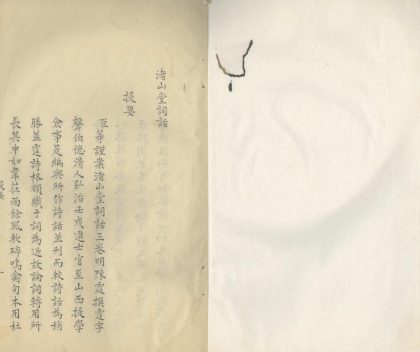 渚山堂詞話
提要
臣等謹案渚山堂詞話三卷明陳霆撰霆字
聲伯德清人弘治壬戌進士官至山西提學
僉事是編與所作詩話並刊而較詩話為稍
勝蓋霆詩格頗纖于詞為近故論詞轉用所
長其中如韋莊雨餘風軟碎鳴禽句本用杜
提要
一